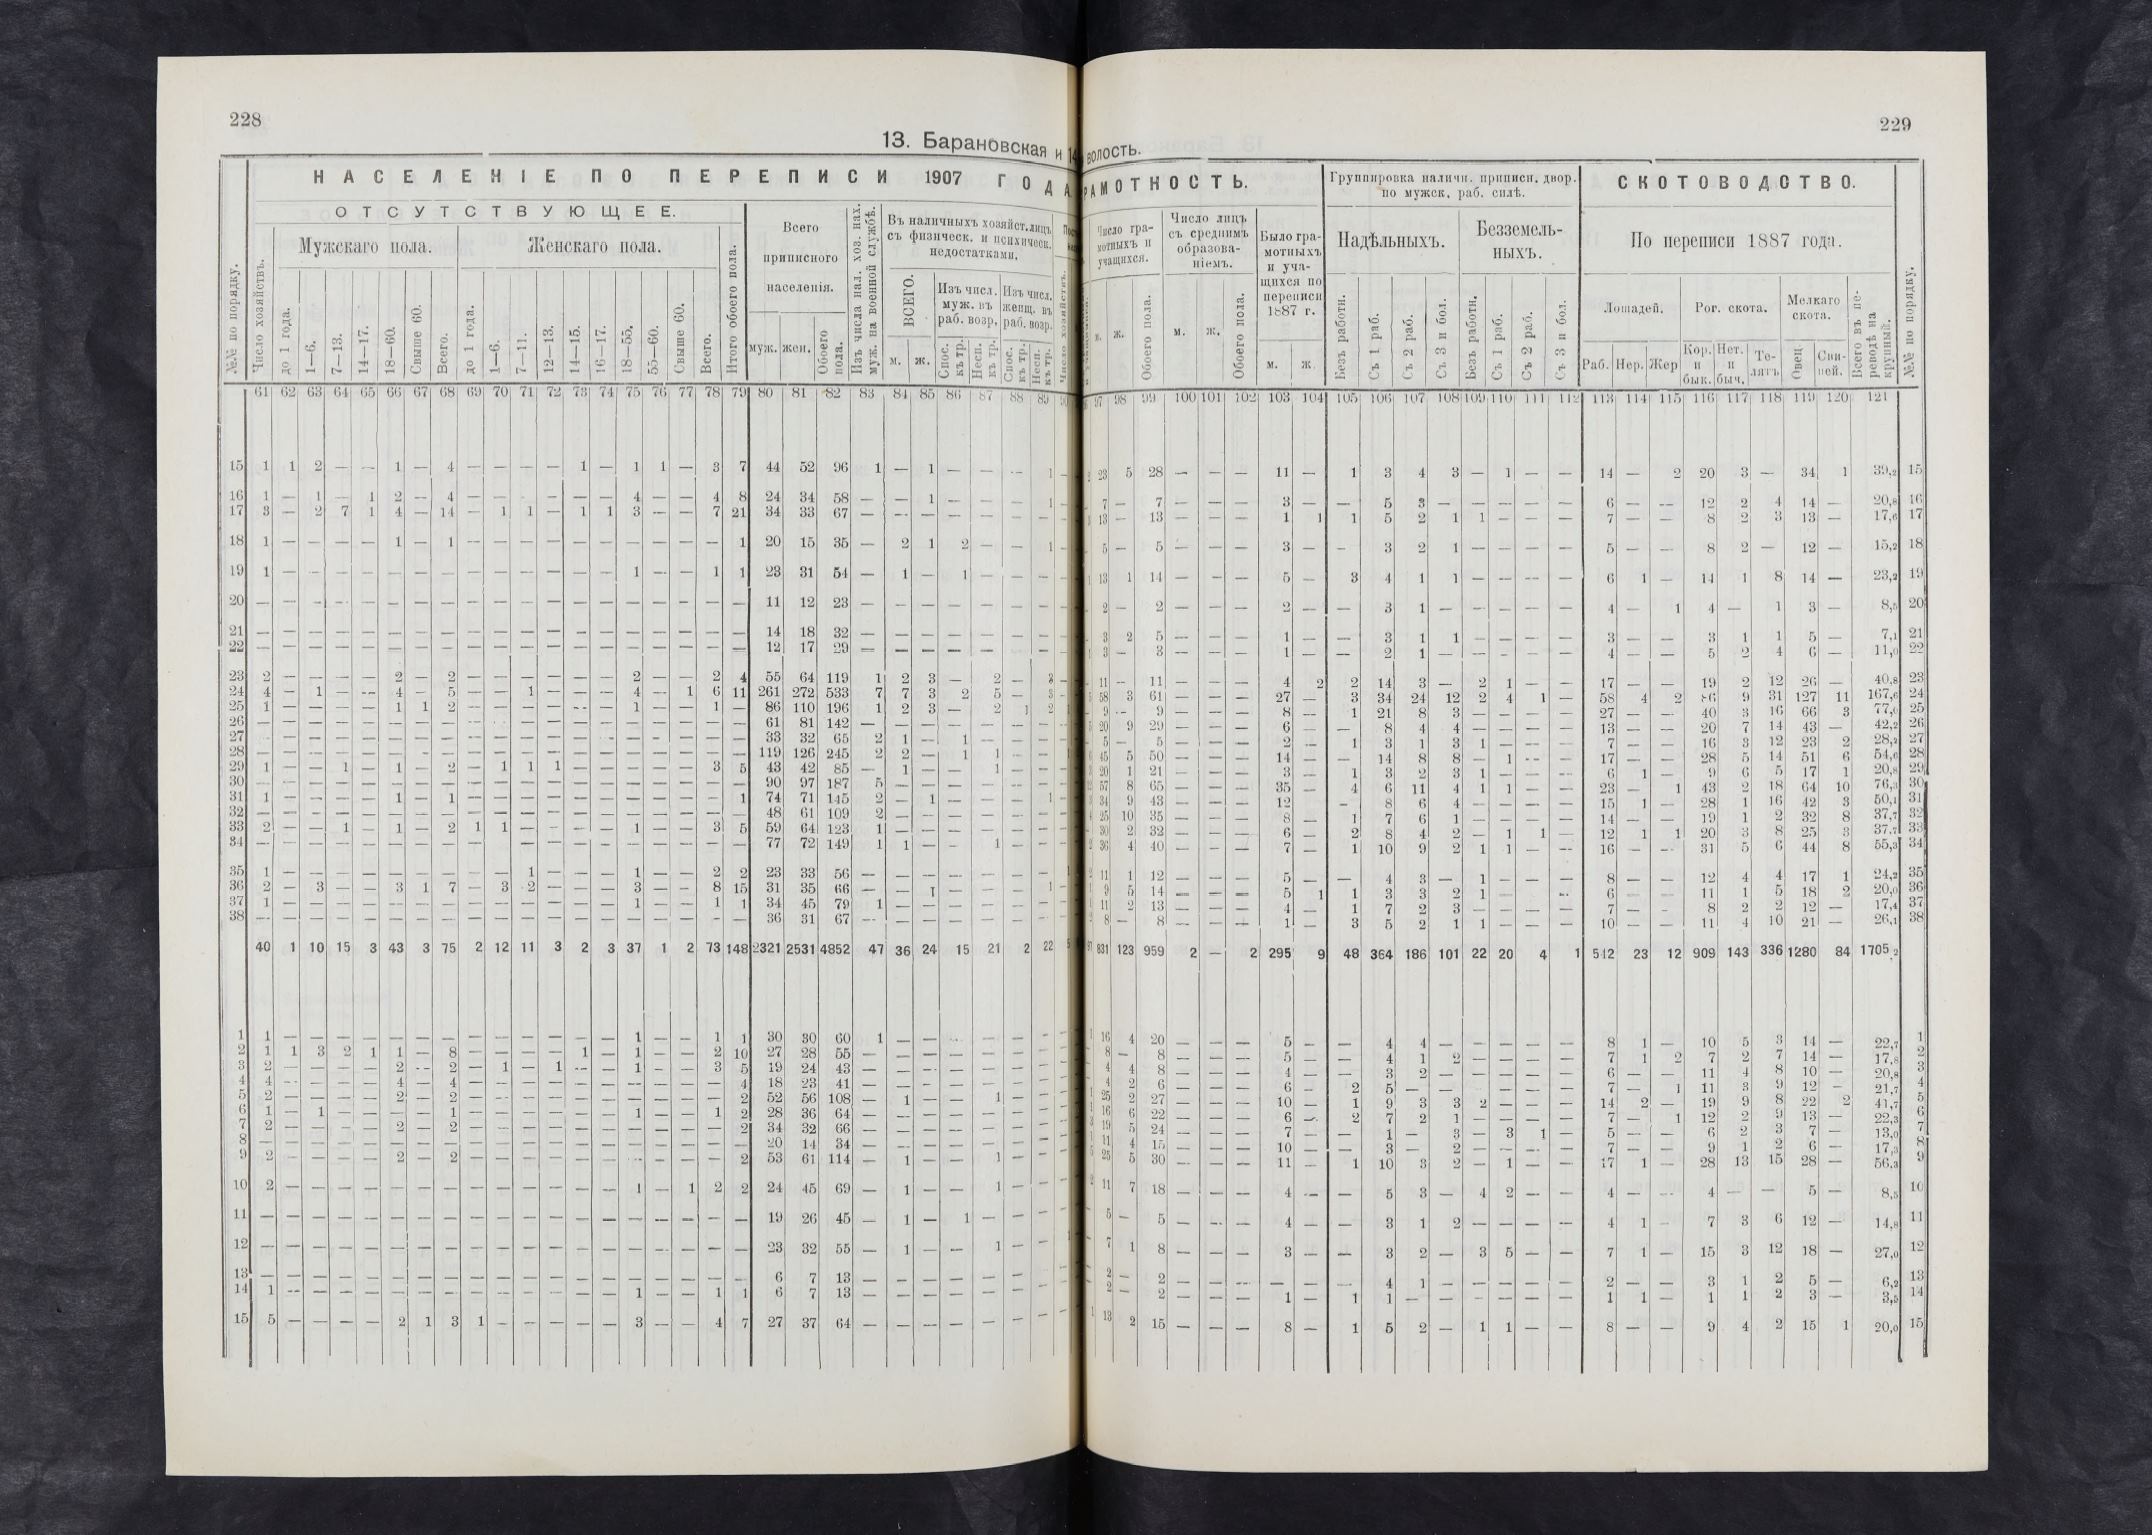 228
229
13. Барановская и 14
волость.
НАСЕЛЕНІЕ ПО ПЕРЕПИСИ 1907 ГОДА.
ОТСУТСТВУЮЩЕЕ.
№№ по порядку.
Число хозяйствъ.
Мужскаго пола.
до 1 года.
1—6.
7—13.
14—17.
18—60.
Свыше 60.
Всего.
Женскаго пола.
до 1 года.
1—6.
7—11.
12—13.
14—15.
16—17.
18—55.
55—60.
Свыше 60.
Всего.
Итого обоего пола.
Всего приписного населенія.
муж. жен. Обоего пола.
Изъ числа нал. хоз. нах. муж. на военной службѣ.
Въ наличныхъ хозяйст. лицъ съ физическ. и психическ. недостатками.
ВСЕГО.
м. ж.
Изъ числ. муж. въ раб. возр.
Спос. къ тр. Несп. къ тр.
Изъ числ. женщ. въ раб. возр.
Спос. къ тр. Несп. къ тр.
Число хозяйствъ.
61 62 63 64 65 66 67 68 69 70 71 72 73 74 75 76 77 78 79 80 81 82 83 84 85 86 87 88 89
15 1 1 2 — — 1 — 4 — — — — 1 — 1 1 — 3 7 44 52 96 1 — 1 — — — 1
16 1 — 1 — 1 2 — 4 — — — — — — 4 — — 4 8 24 34 58 — — 1 — — — 1
17 3 — 2 7 1 4 — 14 — 1 1 — 1 1 3 — — 7 21 34 33 67 — — — — — — —
18 1 — — — — 1 — 1 — — — — — — — — — — 1 20 15 35 — 2 1 2 — — 1
19 1 — — — — — — — — — — — — — 1 — — 1 1 23 31 54 — 1 — 1 — — —
20 — — — — — — — — — — — — — — — — — — — 11 12 23 — — — — — — —
21 — — — — — — — — — — — — — — — — — — — 14 18 32 — — — — — — —
22 — — — — — — — — — — — — — — — — — — — 12 17 29 — — — — — — —
23 2 — — — — 2 — 2 — — — — — — 2 — — 2 4 55 64 119 1 2 3 — 2 — 3
24 4 — 1 — — 4 — 5 — — 1 — — — 4 — 1 6 11 261 272 533 7 7 3 2 5 — 3
25 1 — — — — 1 1 2 — — — — — — 1 — — 1 — 86 110 196 1 2 3 — 2 1 2
26 — — — — — — — — — — — — — — — — — — — 61 81 142 — — — — — — —
27 — — — — — — — — — — — — — — — — — — — 33 32 65 2 1 — 1 — — —
28 — — — — — — — — — — — — — — — — — — — 119 126 245 2 2 — 1 1 — —
29 1 — — 1 — 1 — 2 — 1 1 1 — — — — — 3 5 43 42 85 — 1 — — 1 — —
30 — — — — — — — — — — — — — — — — — — — 90 97 187 5 — — — — — —
31 1 — — — — 1 — 1 — — — — — — — — — — 1 74 71 145 2 — 1 — — — 1
32 — — — — — — — — — — — — — — — — — — — 48 61 109 2 — — — — — —
33 2 — — 1 — 1 — 2 1 1 — — — — 1 — — 3 5 59 64 123 1 — — — — — —
34 — — — — — — — — — — — — — — — — — — — 77 72 149 1 1 — — 1 — —
35 1 — — — — — — — — — 1 — — — 1 — — 2 2 23 33 56 — — — — — — —
36 2 — 3 — — 3 1 7 — 3 2 — — — 3 — — 8 15 31 35 66 — — 1 — — — 1
37 1 — — — — — — — — — — — — — 1 — — 1 1 34 45 79 1 — — — — — —
38 — — — — — — — — — — — — — — — — — — — 36 31 67 — — — — — — —
40 1 10 15 3 43 3 75 2 12 11 3 2 3 37 1 2 73 148 2321 2531 4852 47 36 24 15 21 2 22
1 1 — — — — — — — — — — — — — 1 — — 1 1 30 30 60 1 — — — — — —
2 1 1 3 2 1 1 — 8 — — — — 1 — 1 — — 2 10 27 28 55 — — — — — — —
3 2 — — — — 2 — 2 — 1 — 1 — — 1 — — 3 5 19 24 43 — — — — — — —
4 4 — — — — 4 — 4 — — — — — — — — — — 4 18 23 41 — — — — — — —
5 2 — — — — 2 — 2 — — — — — — — — — — 2 52 56 108 — 1 — — 1 — —
6 1 — 1 — — — — 1 — — — — — — 1 — — 1 2 28 36 64 — — — — — — —
7 2 — — — — 2 — 2 — — — — — — — — — — 2 34 32 66 — — — — — — —
8 — — — — — — — — — — — — — — — — — — — 20 14 34 — — — — — — —
9 2 — — — — 2 — 2 — — — — — — — — — — 2 53 61 114 — 1 — — 1 — —
10 2 — — — — — — — — — — — — — 1 — 1 2 2 24 45 69 — 1 — — 1 — —
11 — — — — — — — — — — — — — — — — — — — 19 26 45 — 1 — 1 — — —
12 — — — — — — — — — — — — — — — — — — — 23 32 55 — 1 — — 1 — —
13 — — — — — — — — — — — — — — — — — — — 6 7 13 — — — — — — —
14 1 — — — — — — — — — — — — — 1 — — 1 1 6 7 13 — — — — — — —
15 5 — — — — 2 1 3 1 — — — — — 3 — — 4 7 27 37 64 — — — — — — —
РАМОТНОСТЬ.
Число грамотныхъ и учащихся.
м. ж. Обоего пола.
Число лицъ съ среднимъ образованіемъ.
м. ж. Обоего пола.
Было грамотныхъ и учащихся по переписи 1887 г.
м. ж.
Группировка наличн. приписн. двор. по мужск. раб. силѣ.
Надѣльныхъ.
Безъ работн. Съ 1 раб. Съ 2 раб. Съ 3 и бол.
Безземельныхъ.
Безъ работн. Съ 1 раб. Съ 2 раб. Съ 3 и бол.
СКОТОВОДСТВО.
По переписи 1887 года.
Лошадей.
Раб. Нер. Жер
Рог. скота.
Кор. и бык. Нет. и быч. Телятъ
Мелкаго скота.
Овец Свиней.
Всего въ переводѣ на крупный.
№№ по порядку.
97 98 99 100 101 102 103 104 105 106 107 108 109 110 111 112 113 114 115 116 117 118 119 120 121
23 5 28 — — — 11 — 1 3 4 3 — 1 — — 14 — 2 20 3 — 34 1 39,2 15
7 — 7 — — — 3 — — 5 3 — — — — — 6 — — 12 2 4 14 — 20,8 16
13 — 13 — — — 1 1 1 5 2 1 1 — — — 7 — — 8 2 3 13 — 17,6 17
5 — 5 — — — 3 — — 3 2 1 — — — — 5 — — 8 2 — 12 — 15,2 18
13 1 14 — — — 5 — 3 4 1 1 — — — — 6 1 — 14 1 8 14 — 23,2 19
2 — 2 — — — 2 — — 3 1 — — — — — 4 — 1 4 — 1 3 — 8,5 20
3 2 5 — — — 1 — — 3 1 1 — — — — 3 — — 3 1 1 5 — 7,1 21
3 — 3 — — — 1 — — 2 1 — — — — — 4 — — 5 2 4 6 — 11,0 22
11 — 11 — — — 4 2 2 14 3 — 2 1 — — 17 — — 19 2 12 26 — 40,8 23
58 3 61 — — — 27 — 3 34 24 12 2 4 1 — 58 4 2 86 9 31 127 11 167,6 24
9 — 9 — — — 8 — 1 21 8 3 — — — — 27 — — 40 3 16 66 3 77,0 25
20 9 29 — — — 6 — — 8 4 4 — — — — 13 — — 20 7 14 43 — 42,2 26
5 — 5 — — — 2 — 1 3 1 3 1 — — — 7 — — 16 3 12 23 2 28,2 27
45 5 50 — — — 14 — — 14 8 8 — 1 — — 17 — — 28 5 14 51 6 54,6 28
20 1 21 — — — 3 — 1 3 2 3 1 — — — 6 1 — 9 6 5 17 1 20,8 29
57 8 65 — — — 35 — 4 6 11 4 1 1 — — 23 — 1 43 2 18 64 10 76,3 30
34 9 43 — — — 12 — — 8 6 4 — — — — 15 1 — 28 1 16 42 3 50,1 31
25 10 35 — — — 8 — 1 7 6 1 — — — — 14 — — 19 1 2 32 8 37,7 32
30 2 32 — — — 6 — 2 8 4 2 — 1 1 — 12 1 1 20 3 8 25 3 37,7 33
36 4 40 — — — 7 — 1 10 9 2 1 1 — — 16 — — 31 5 6 44 8 55,3 34
11 1 12 — — — 5 — — 4 3 — 1 — — — 8 — — 12 4 4 17 1 24,2 35
9 5 14 — — — 5 1 1 3 3 2 1 — — — 6 — — 11 1 5 18 2 20,0 36
11 2 13 — — — 4 — 1 7 2 3 — — — — 7 — — 8 2 2 12 — 17,4 37
8 — 8 — — — 1 — 3 5 2 1 1 — — — 10 — — 11 4 10 21 — 26,1 38
831 123 959 2 — 2 295 9 48 364 186 101 22 20 4 1 512 23 12 909 143 336 1280 84 1705,2
16 4 20 — — — 5 — — 4 4 — — — — — 8 1 — 10 5 3 14 — 22,7 1
8 — 8 — — — 5 — — 4 1 2 — — — — 7 1 2 7 2 7 14 — 17,8 2
4 4 8 — — — 4 — — 3 2 — — — — — 6 — — 11 4 8 10 — 20,8 3
4 2 6 — — — 6 — 2 5 — — — — — — 7 — 1 11 3 9 12 — 21,7 4
25 2 27 — — — 10 — 1 9 3 3 2 — — — 14 2 — 19 9 8 22 2 41,7 5
16 6 22 — — — 6 — 2 7 2 1 — — — — 7 — 1 12 2 9 13 — 22,3 6
19 5 24 — — — 7 — — 1 — 3 — 3 1 — 5 — — 6 2 3 7 — 13,0 7
11 4 15 — — — 10 — — 3 — 2 — — — — 7 — — 9 1 2 6 — 17,3 8
25 5 30 — — — 11 — 1 10 3 2 — 1 — — 17 1 — 28 13 15 28 — 56,3 9
11 7 18 — — — 4 — — 5 3 — 4 2 — — 4 — — 4 — — 5 — 8,5 10
5 — 5 — — — 4 — — 3 1 2 — — — — 4 1 — 7 3 6 12 — 14,8 11
7 1 8 — — — 3 — — 3 2 — 3 5 — — 7 1 — 15 3 12 18 — 27,0 12
2 — 2 — — — — — — 4 1 — — — — — 2 — — 3 1 2 5 — 6,2 13
2 — 2 — — — 1 — 1 1 — — — — — — 1 1 — 1 1 2 3 — 3,5 14
13 2 15 — — — 8 — 1 5 2 — 1 1 — — 8 — — 9 4 2 15 1 20,0 15